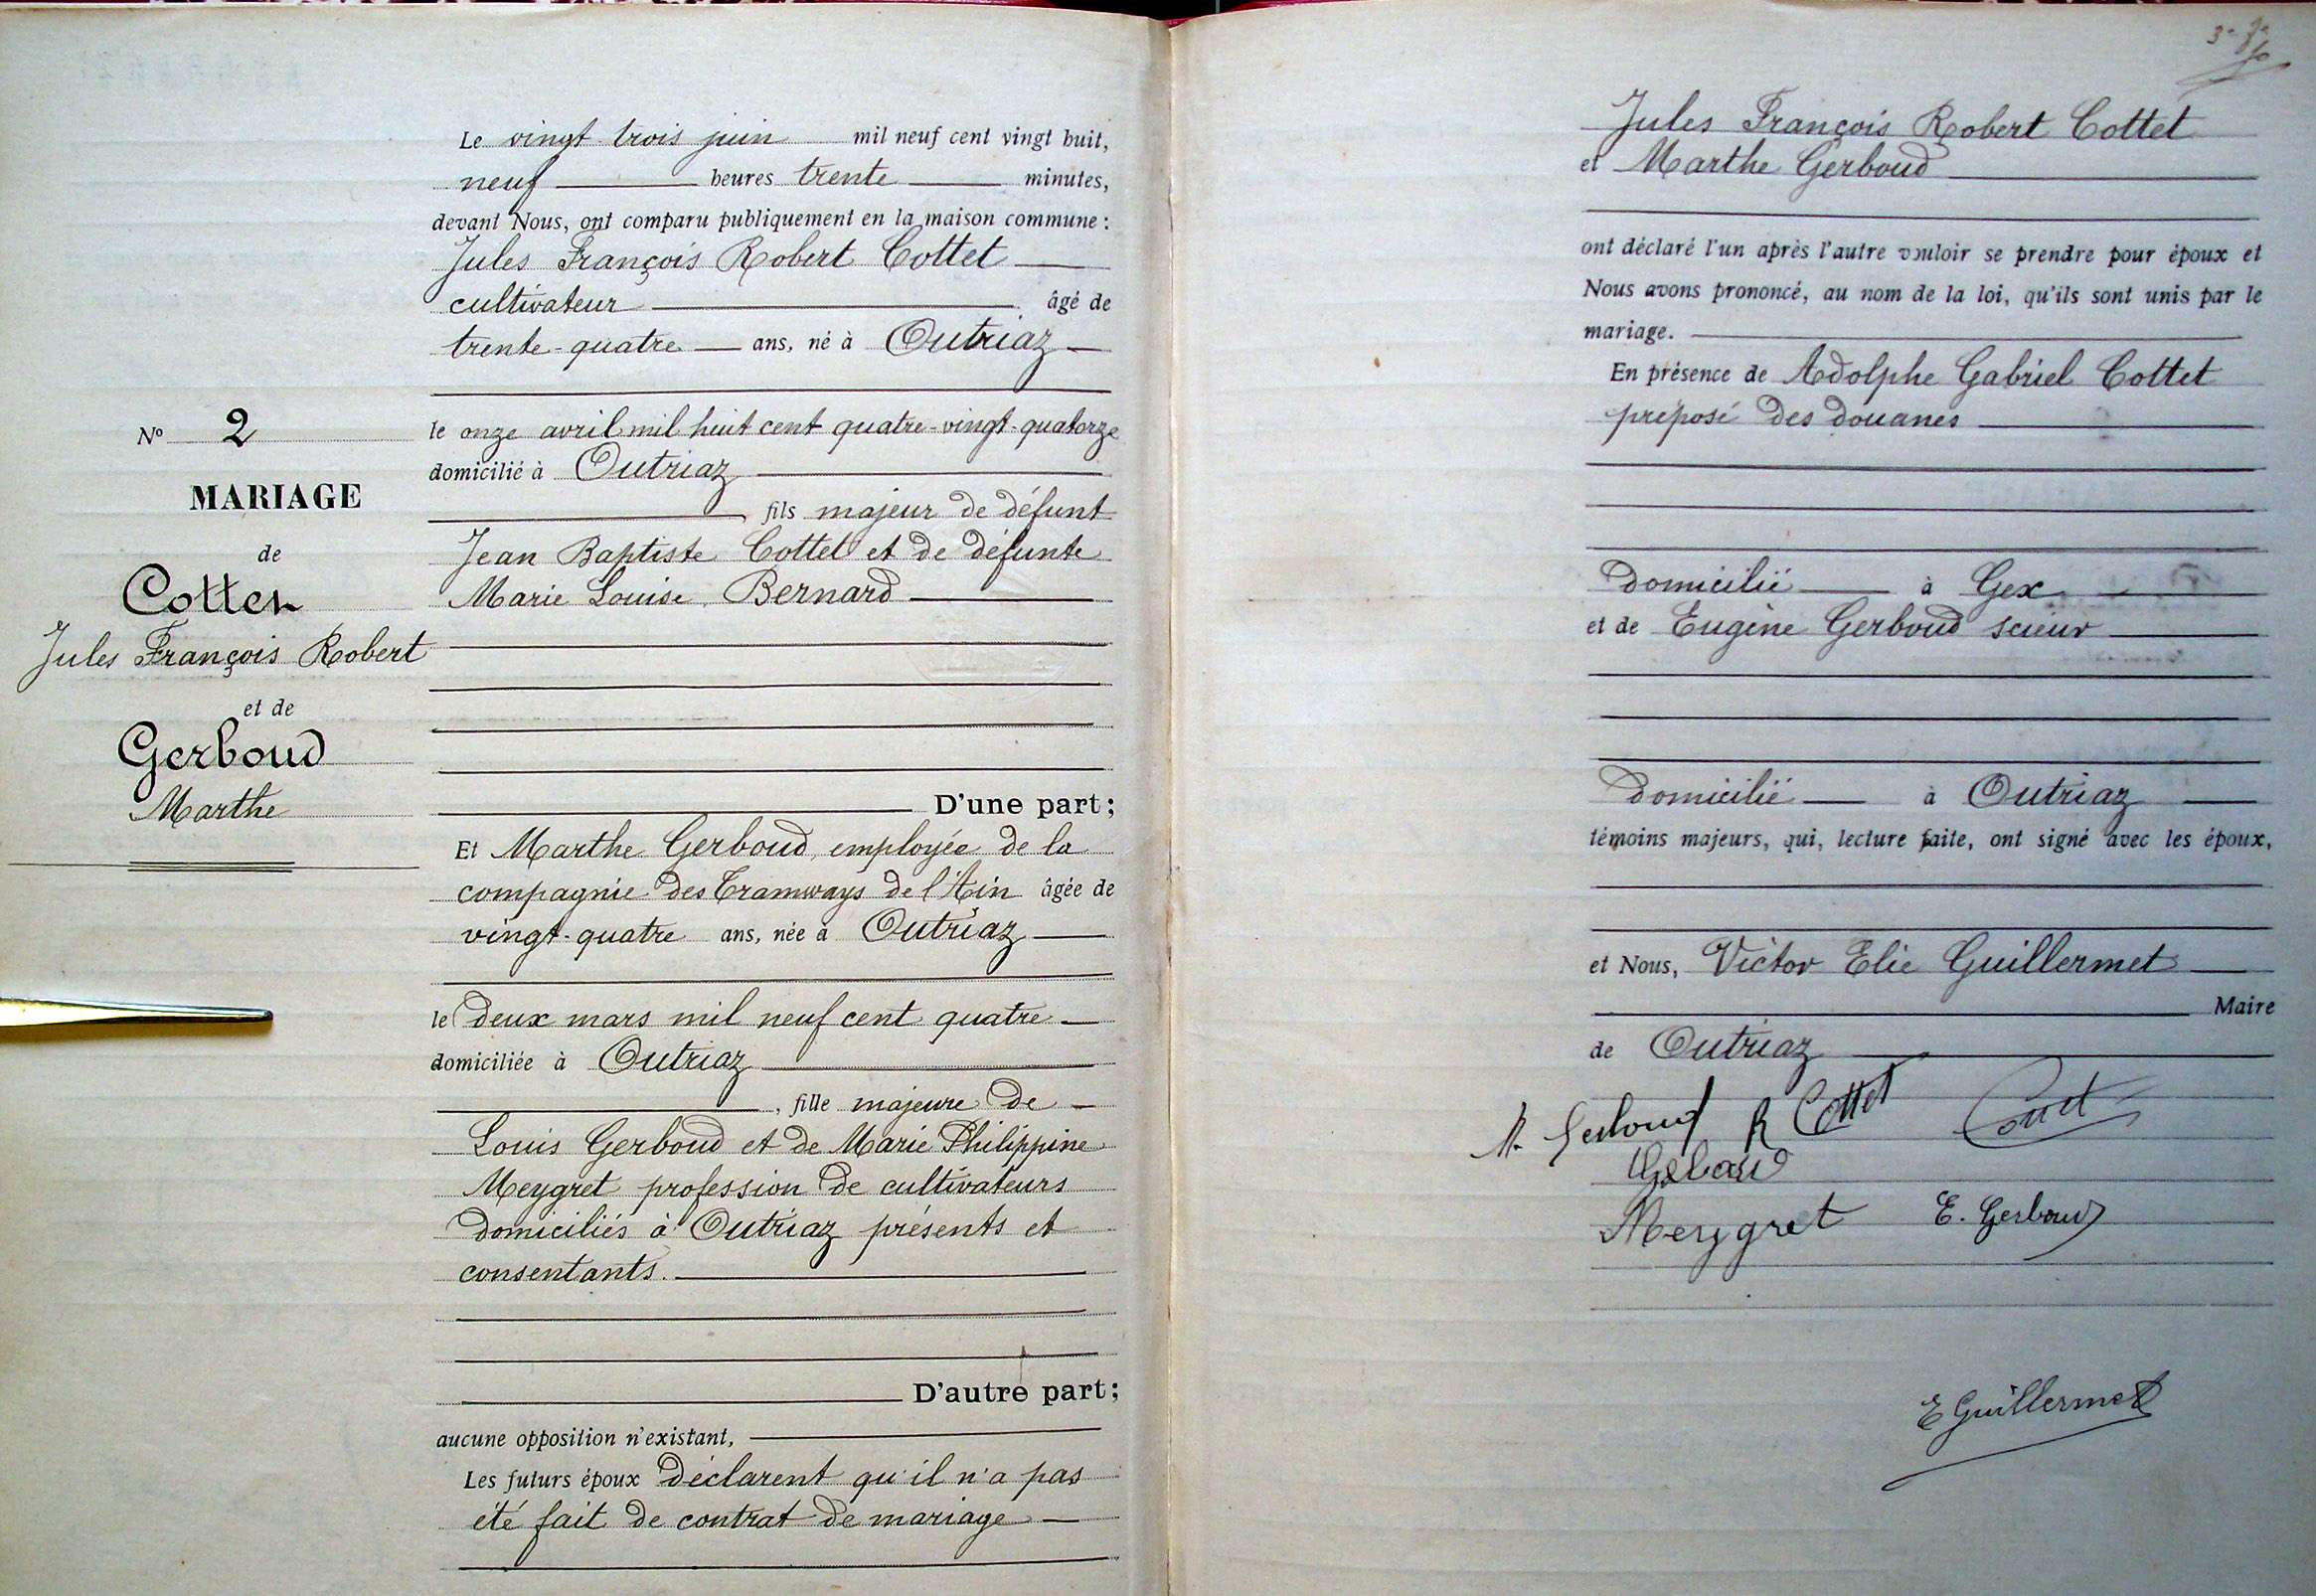 Le vingt trois juin mil neuf cent vingt huit,
neuf heures trente minutes,
devant Nous, ont comparu publiquement en la maison commune :
Jules François Robert Cottet
cultivateur âgé de
trente-quatre ans, né à Outriaz
le onze avril mil huit cent quatre-vingt-quatorze
domicilié à Outriaz
fils majeur de défunt
Jean Baptiste Cottet et de défunte
Marie Louise Bernard
D'une part;
Nº 2
MARIAGE
de
Cottet
Jules François Robert
et de
Gerboud
Marthe
Et Marthe Gerboud, employée de la
compagnie des Tramways de l'Ain âgée de
vingt-quatre ans, née à Outriaz
le deux mars mil neuf cent quatre
domiciliée à Outriaz
, fille majeure de
Louis Gerboud et de Marie Philippine
Meygret profession de cultivateurs
domiciliés à Outriaz présents et
consentants.
D'autre part;
aucune opposition n'existant,
Les futurs époux déclarent qu'il n'a pas
été fait de contrat de mariage
Jules François Robert Cottet
et Marthe Gerboud
ont déclaré l'un après l'autre vouloir se prendre pour époux et
Nous avons prononcé, au nom de la loi, qu'ils sont unis par le
mariage.
En présence de Adolphe Gabriel Cottet
préposé des douanes
Domicilié à Gex
et de Eugène Gerboud scieur
Domicilié à Outriaz
témoins majeurs, qui, lecture faite, ont signé avec les époux,
et Nous, Victor Elie Guillermet
Maire
de Outriaz
M. Gerboud R Cottet Cottet
Meygret E. Gerboud
E Guillermet